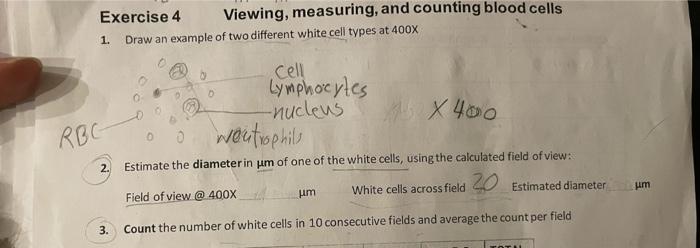 Exercise 4 Viewing, measuring, and counting blood cells
1. Draw an example of two different white cell types at 400X
cell
Lymphocytes
nucleus
X 400
RBC
neutrophils
2. Estimate the diameter in µm of one of the white cells, using the calculated field of view:
Field of view @ 400X µm White cells across field 20 Estimated diameter µm
3. Count the number of white cells in 10 consecutive fields and average the count per field
TOTAL